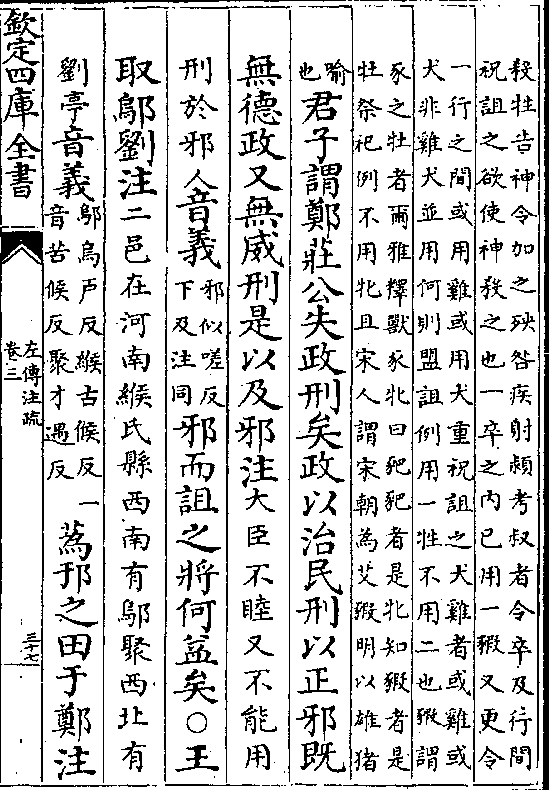 殺牲告神令加之殃咎疾射潁考叔者令卒及行間
祝詛之欲使神殺之也一卒之内已用一豭又更令
一行之間或用雞或用犬重祝詛之犬雞者或雞或
犬非雞犬並用何則盟詛例用一牲不用二也豭謂
豕之牡者爾雅釋獸豕牝曰豝豝者是牝知豭者是
牡祭祀例不用牝且宋人謂宋朝為艾豭明以雄猪
喻也君子謂鄭莊公失政刑矣政以治民刑以正邪既
無德政又無威刑是以及邪注大臣不睦又不能用
刑於邪人音義邪似嗟反下及注同邪而詛之將何益矣○王
取鄔劉注二邑在河南緱氏縣西南有鄔聚西北有
劉亭音義鄔烏户反緱古候反一音苦候反聚才遇反蒍邘之田于鄭注
欽定四庫全書
左傳注疏
卷三
三十七